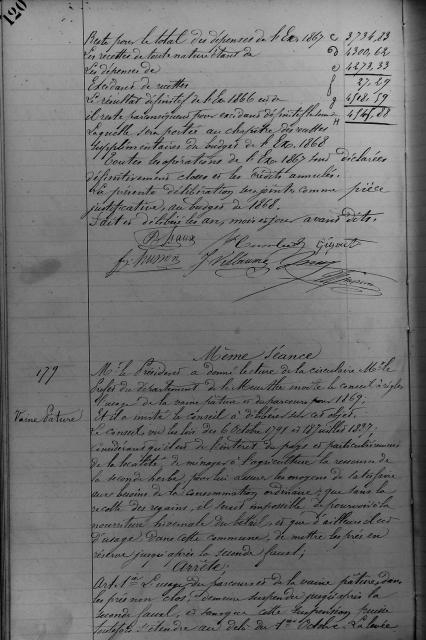 120
Reste pour le total des dépenses de l'Ex. 1867 c 3,734,23
Les recettes de toute nature étant de D 4300,62
Les dépenses de e 4273,33
Excédant de recettes f 27,29
Le résultat définitif de l'Ex. 1866 est de g
il reste par conséquent pour excédant définitif la somme H
Laquelle sera portée au chapitre des recettes
supplémentaires du budget de l'Ex. 1868
Toutes les opérations de l'Ex. 1867 sont déclarées
définitivement closes et les crédits annulés.
La présente délibération sera jointe comme pièce
justificative, au budget de 1868.
Fait et délibéré les an, mois et jour avant dits.
Même Séance
179
Mr le Président a donné lecture de la circulaire Mr le
Préfet du département de la Meurthe invite le conseil à régler
l'usage de la vaine pâture et du parcours pour 1869;
Vaine Pâture
Et il a invité le conseil à délibérer sur cet objet.
Le conseil, vu les lois des 6 Octobre 1791 et 18 Juillet 1837;
considérant qu'il est de l'intérêt du pays et particulièrement
de la localité, de ménager à l'agriculture la ressource de
la seconde herbe, pour lui assurer les moyens de satisfaire
aux besoins de la consommation ordinaire; que sans la
récolte des regains, il serait impossible de pourvoir à la
nourriture hivernale du bétail, et que d'ailleurs il est
d'usage dans cette commune, de mettre les prés en
réserve jusqu'après la seconde faux;
Arrête:
Art. 1er L'usage du parcours et de la vaine pâture dans
les prés non clos, demeure suspendu jusqu'après la
seconde faux, sans que cette suspension puisse
toutefois s'étendre au delà du 1er Octobre. La levée